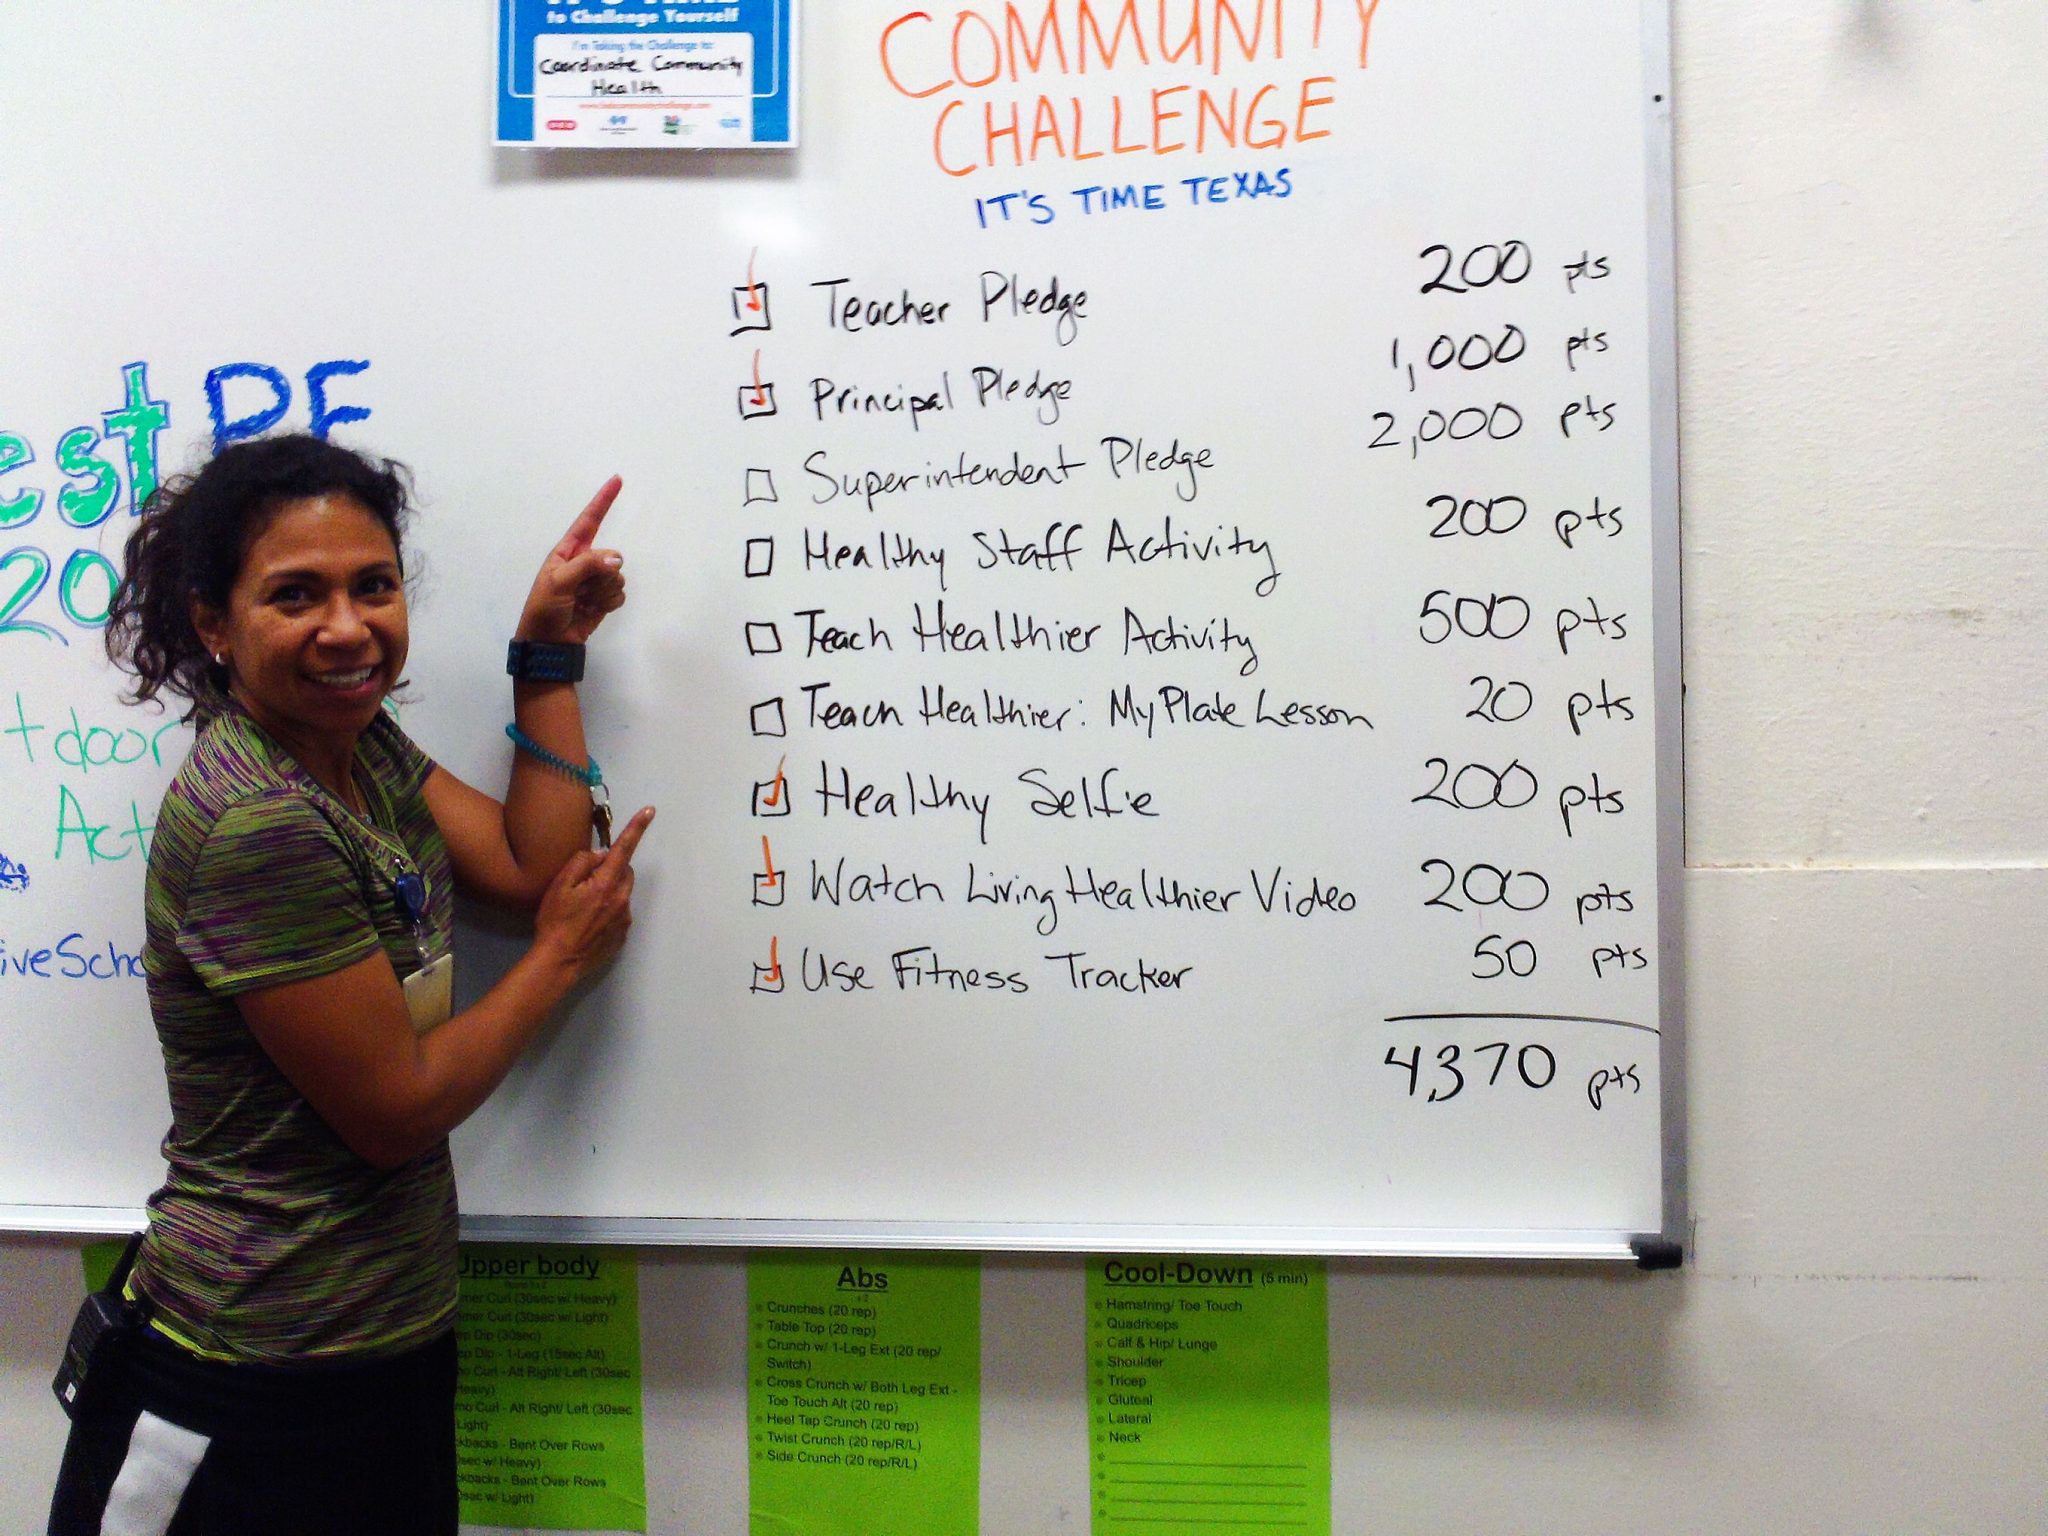 to Challenge Yourself
I'm Taking the Challenge to:
Coordinate Community
Health
COMMUNITY
CHALLENGE
IT'S TIME TEXAS
Teacher Pledge 200 pts
Principal Pledge 1,000 pts
Superintendent Pledge 2,000 pts
Healthy Staff Activity 200 pts
Teach Healthier Activity 500 pts
Teach Healthier: MyPlate Lesson 20 pts
Healthy Selfie 200 pts
Watch Living Healthier Video 200 pts
Use Fitness Tracker 50 pts
4,370 pts
est PE
20
tdoor
Act
iveScho
Upper body
mer Curl (30sec w/ Heavy)
mer Curl (30sec w/ Light)
ep Dip (30sec)
ep Dip - 1-Leg (15sec Alt)
mo Curl - Alt Right/ Left (30sec
Heavy)
mo Curl - Alt Right/ Left (30sec
Light)
ckbacks - Bent Over Rows
sec w/ Heavy)
ckbacks - Bent Over Rows
sec w/ Light)
Abs
x 2
Crunches (20 rep)
Table Top (20 rep)
Crunch w/ 1-Leg Ext (20 rep/
Switch)
Cross Crunch w/ Both Leg Ext -
Toe Touch Alt (20 rep)
Heel Tap Crunch (20 rep)
Twist Crunch (20 rep/R/L)
Side Crunch (20 rep/R/L)
Cool-Down (5 min)
Hamstring/ Toe Touch
Quadriceps
Calf & Hip/ Lunge
Shoulder
Tricep
Gluteal
Lateral
Neck